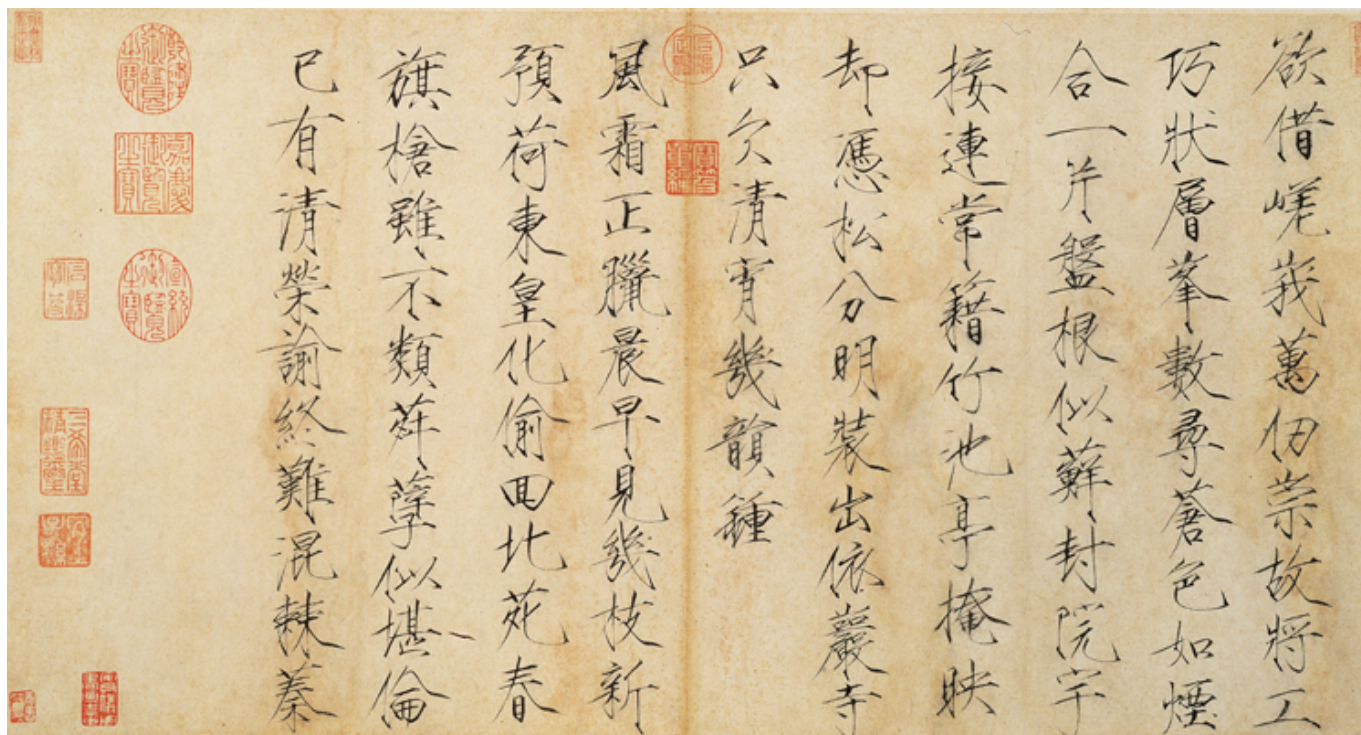 欲借嵯峩萬仞崇故將工
巧狀層峯數尋蒼色如煙
合一片盤根似蘚封院宇
接連常籍竹池亭掩映
却憑松分明裝出依巖寺
只欠清宵幾韻鍾
風霜正臘晨早見幾枝新
預荷東皇化偷回北苑春
旗槍雖不類荈孽似堪倫
已有清榮諭終難混棘蓁
乾隆御覽之寶
嘉慶御覽之寶
宣統御覽之寶